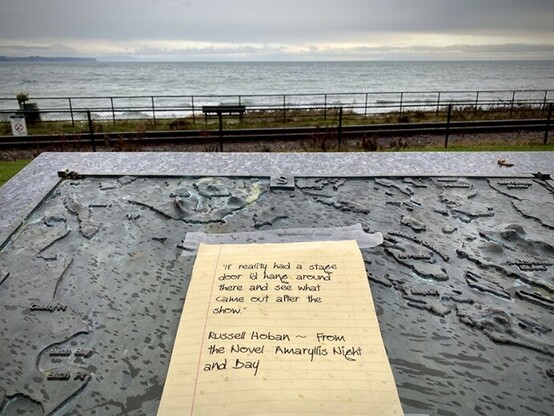 "If reality had a stage
door I'd hang around
there and see what
came out after the
show."
Russell Hoban ~ From
the Novel Amaryllis Night
and Day